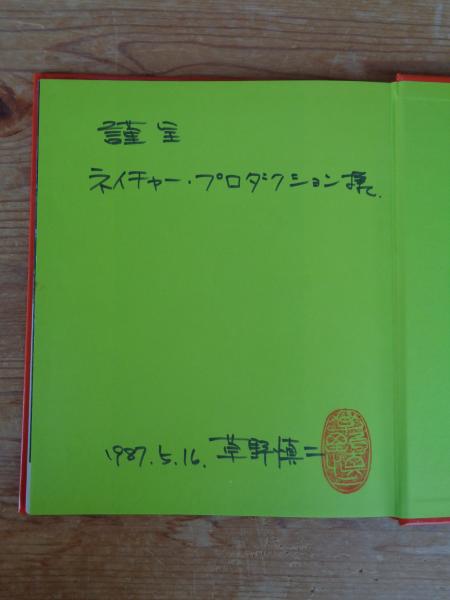 謹呈
ネイチャー・プロダクション様
1987.5.16. 草野慎二